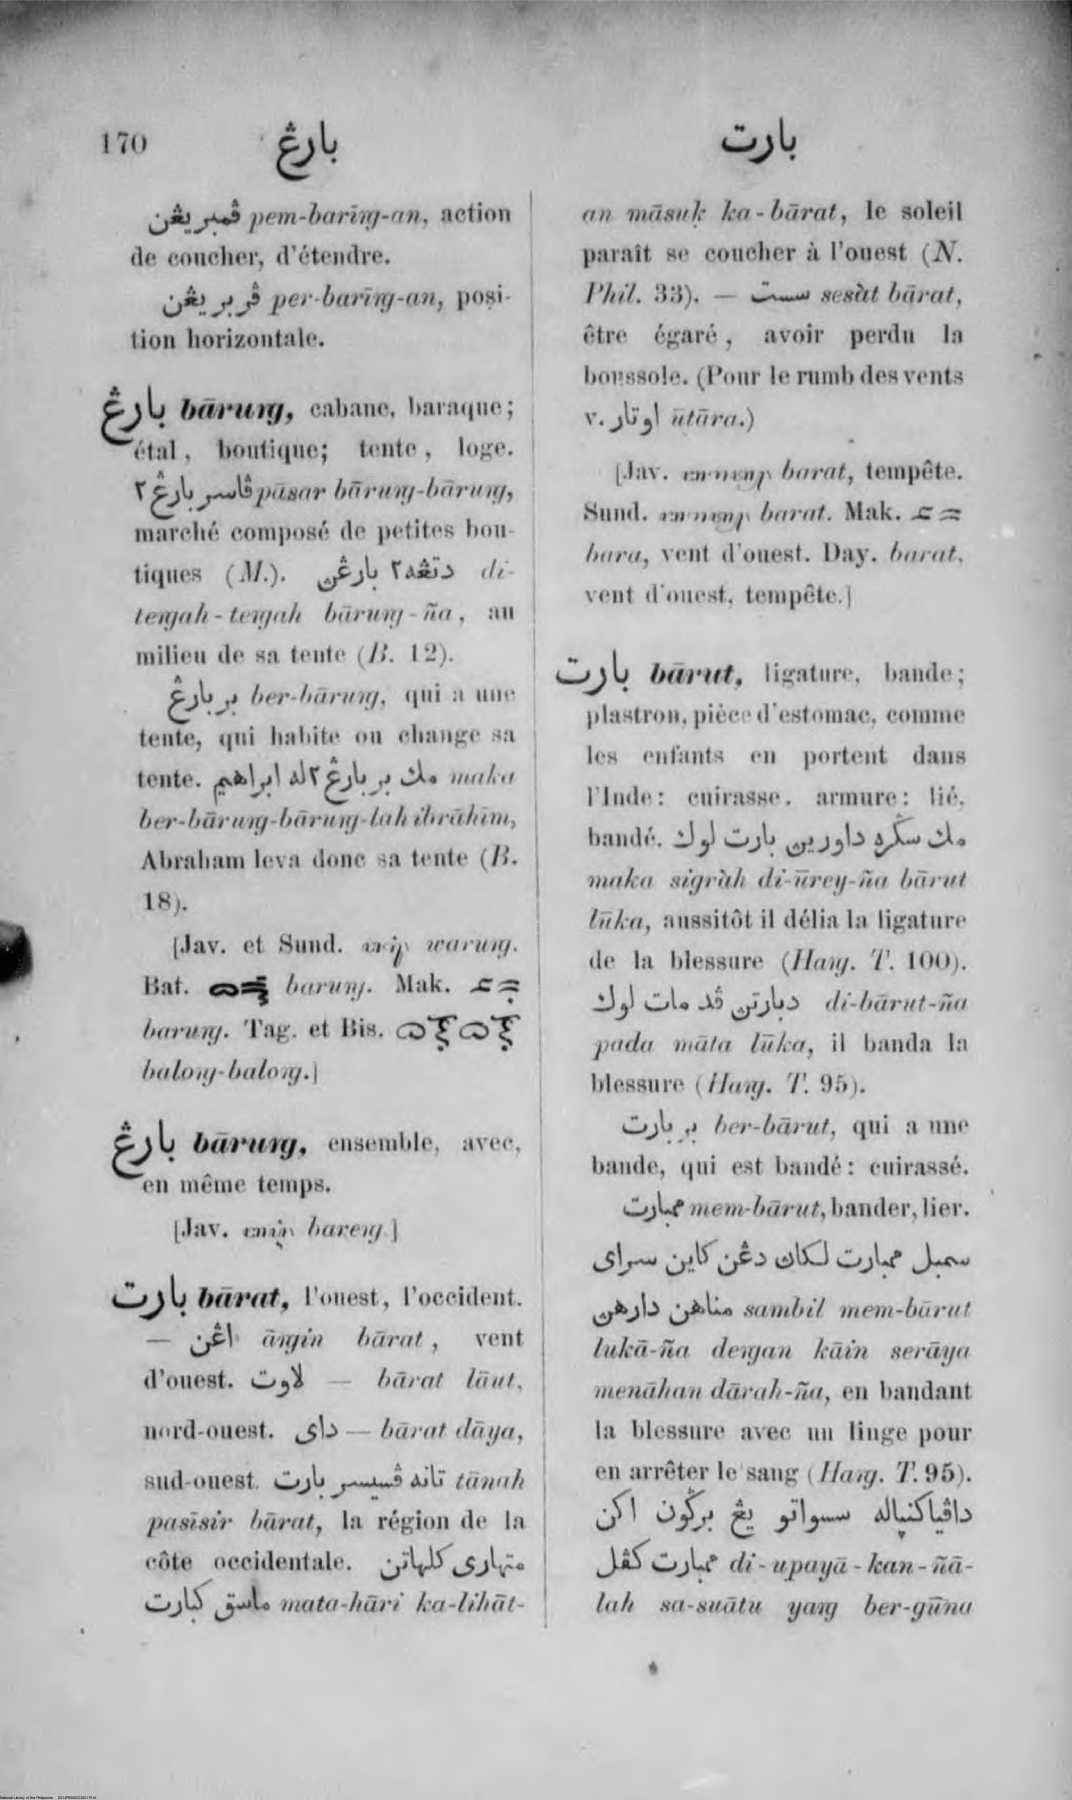 170
بارڠ
بارت
ڤمبريڠن pem-barīŋ-an, action
de coucher, d'étendre.
ڤربريڠن per-barīŋ-an, posi-
tion horizontale.
بارڠ bāruŋ, cabane, baraque;
étal, boutique; tente, loge.
ڤاسر بارڠ٢ pāsar bāruŋ-bāruŋ,
marché composé de petites bou-
tiques (M.). دتڠه٢ بارڠن di-
teŋah-teŋah bāruŋ-ña, au
milieu de sa tente (B. 12).
بربارڠ ber-bāruŋ, qui a une
tente, qui habite ou change sa
tente. مك بربارڠ٢له ابراهيم maka
ber-bāruŋ-bāruŋ-lah ibrāhīm,
Abraham leva donc sa tente (B.
18).
[Jav. et Sund. waruŋ.
Bat. baruŋ. Mak.
baruŋ. Tag. et Bis.
baloŋ-baloŋ.]
بارڠ bāruŋ, ensemble, avec,
en même temps.
[Jav. bareŋ.]
بارت bārat, l'ouest, l'occident.
— اڠن āŋin bārat, vent
d'ouest. لاوت — bārat lāut,
nord-ouest. داى — bārat dāya,
sud-ouest. تانه ڤسيسر بارت tānah
pasīsir bārat, la région de la
côte occidentale. متهارى كلهاتن
ماسق كبارت mata-hāri ka-lihāt-
an māsuḳ ka-bārat, le soleil
paraît se coucher à l'ouest (N.
Phil. 33). — سست sesàt bārat,
être égaré, avoir perdu la
boussole. (Pour le rumb des vents
v. اوتار ūtāra.)
[Jav. barat, tempête.
Sund. barat. Mak.
bara, vent d'ouest. Day. barat,
vent d'ouest, tempête.]
بارت bārut, ligature, bande;
plastron, pièce d'estomac, comme
les enfants en portent dans
l'Inde; cuirasse, armure; lié,
bandé. مك سڬره داورين بارت لوك
maka sigràh di-ūrey-ña bārut
lūka, aussitôt il délia la ligature
de la blessure (Haŋ. T. 100).
دبارتن ڤد مات لوك di-bārut-ña
pada māta lūka, il banda la
blessure (Haŋ. T. 95).
بربارت ber-bārut, qui a une
bande, qui est bandé; cuirassé.
ممبارت mem-bārut, bander, lier.
سمبل ممبارت لكان دڠن كاين سراى
مناهن دارهن sambil mem-bārut
lukā-ña deŋan kāin serāya
menāhan dārah-ña, en bandant
la blessure avec un linge pour
en arrêter le sang (Haŋ. T. 95).
داڤياكنياله سسواتو يڠ برڬون اكن
ممبارت كڤل di-upayā-kan-ñā-
lah sa-suātu yaŋ ber-gūna